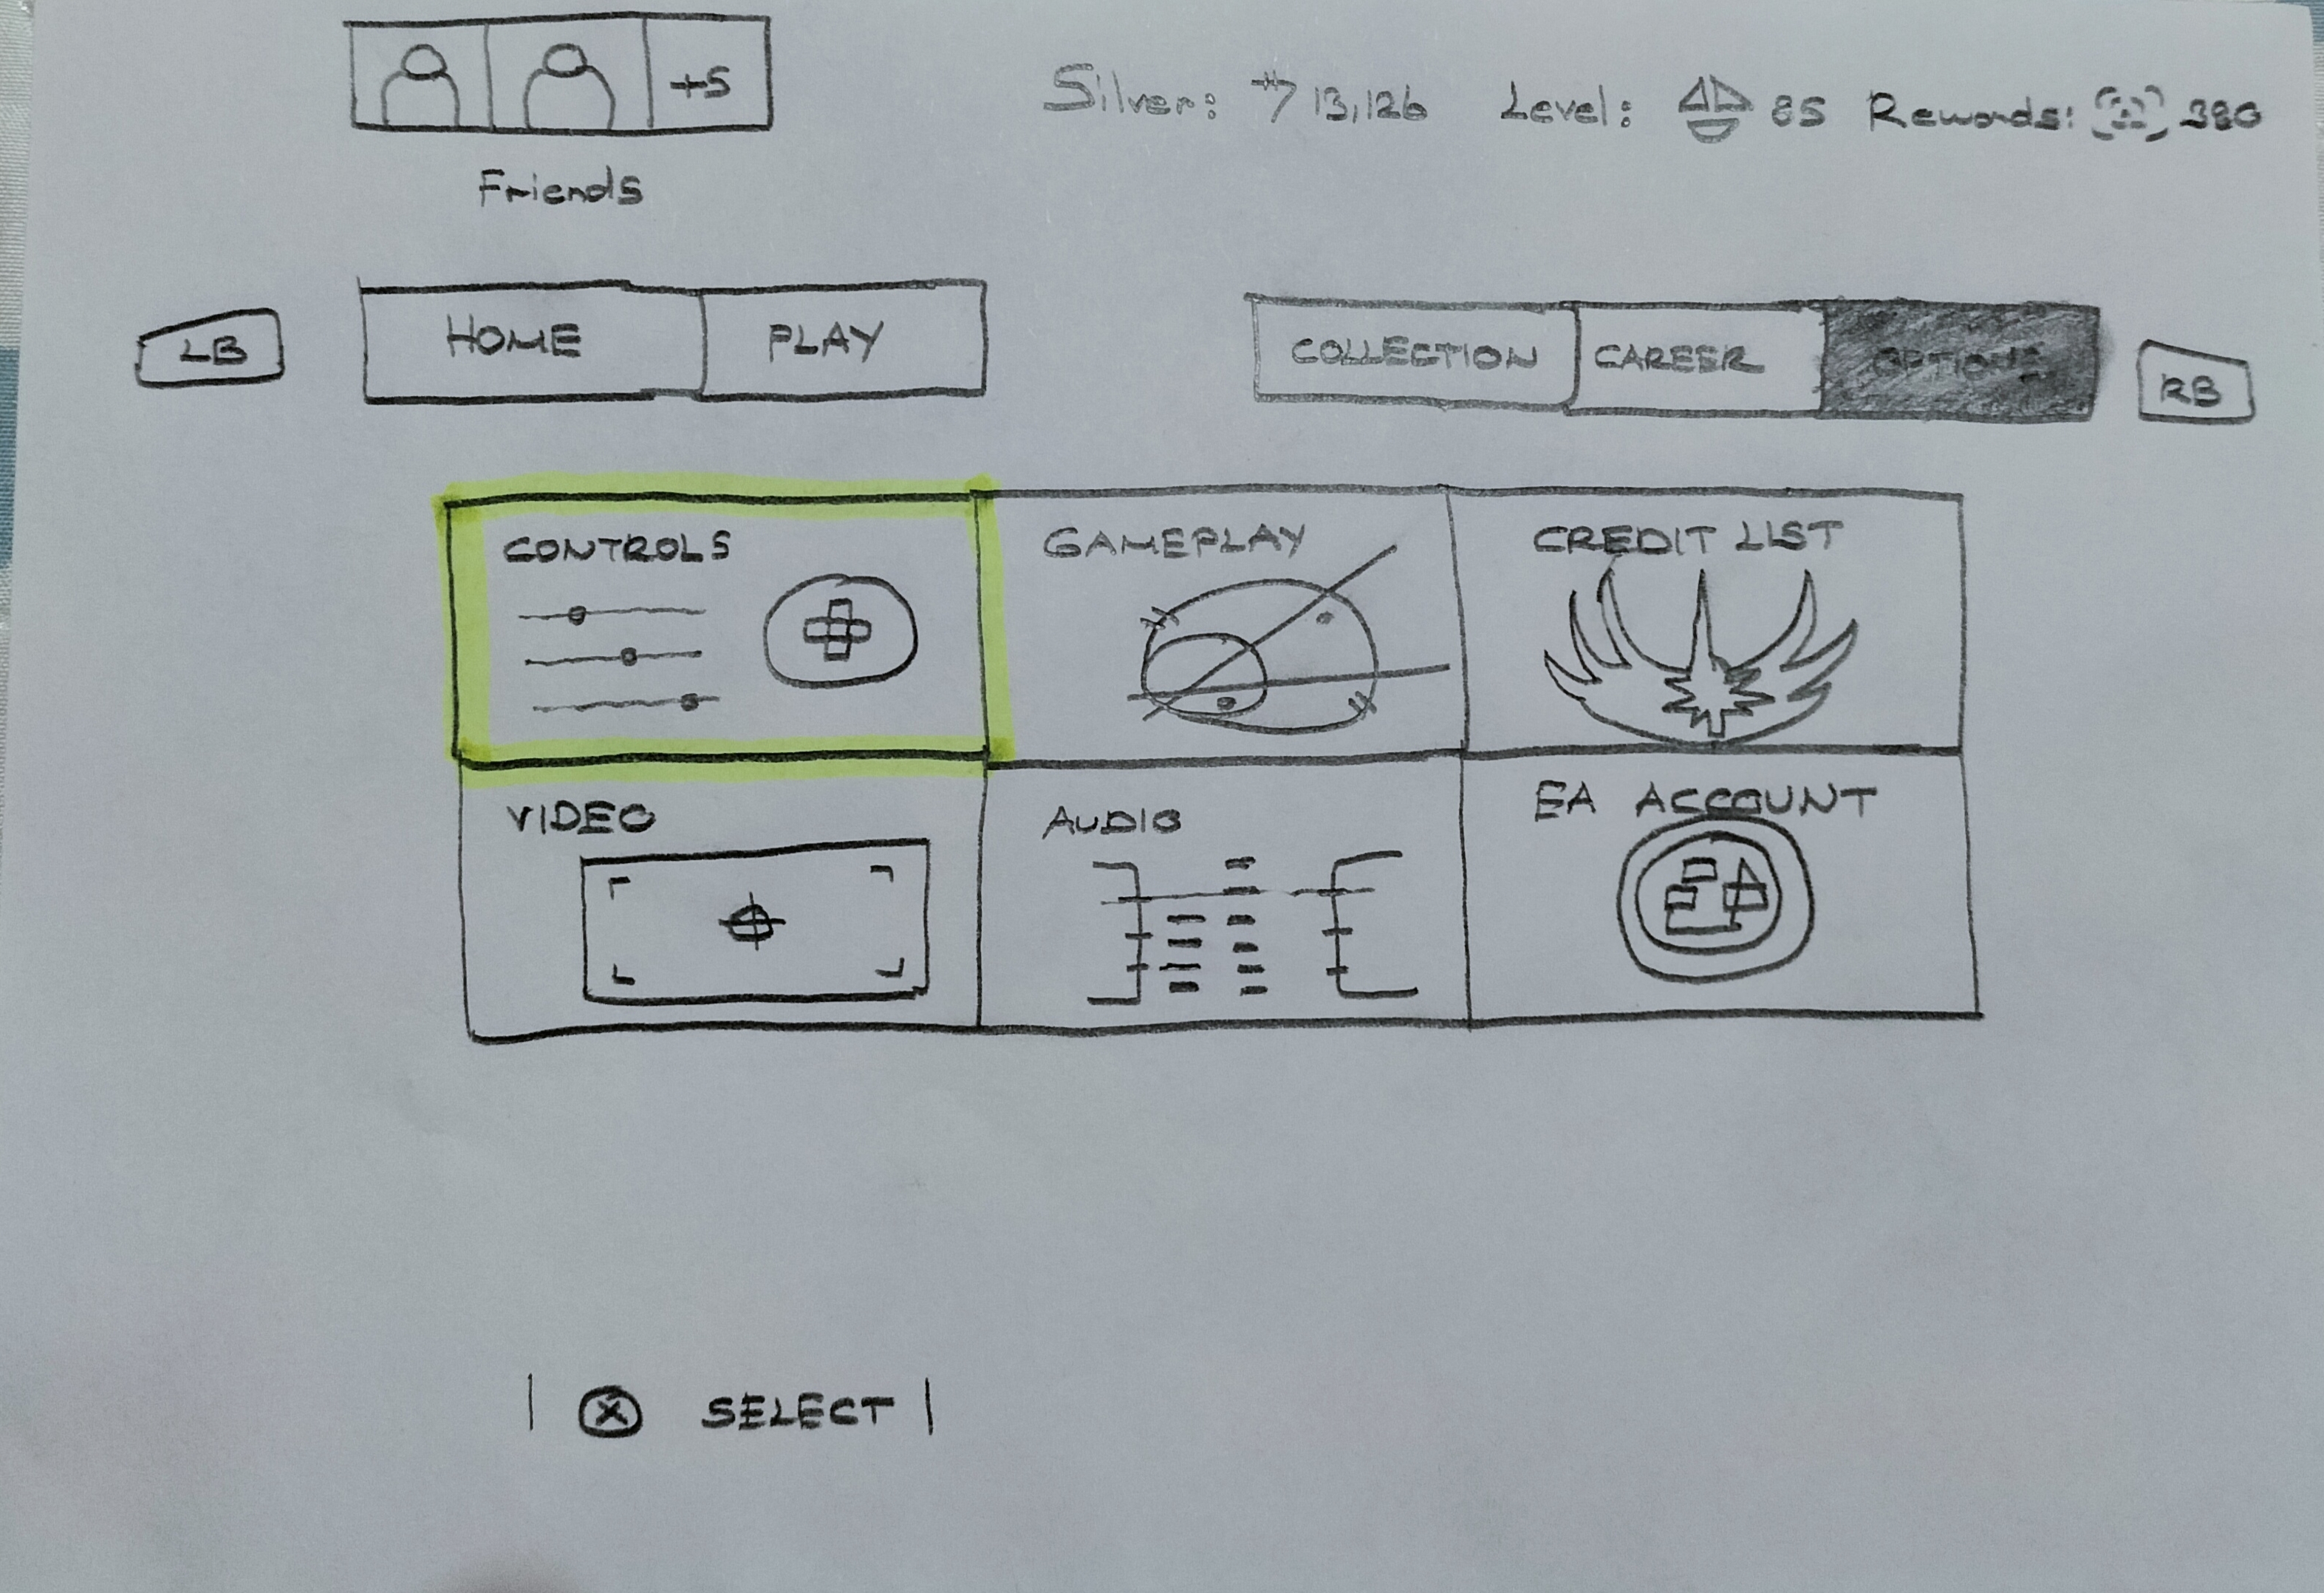 +5
Friends
Silver: 13,126 Level: 85 Rewards: 380
LB
HOME PLAY
COLLECTION CAREER OPTIONS
RB
CONTROLS GAMEPLAY CREDIT LIST
VIDEO AUDIO EA ACCOUNT
EA
X SELECT